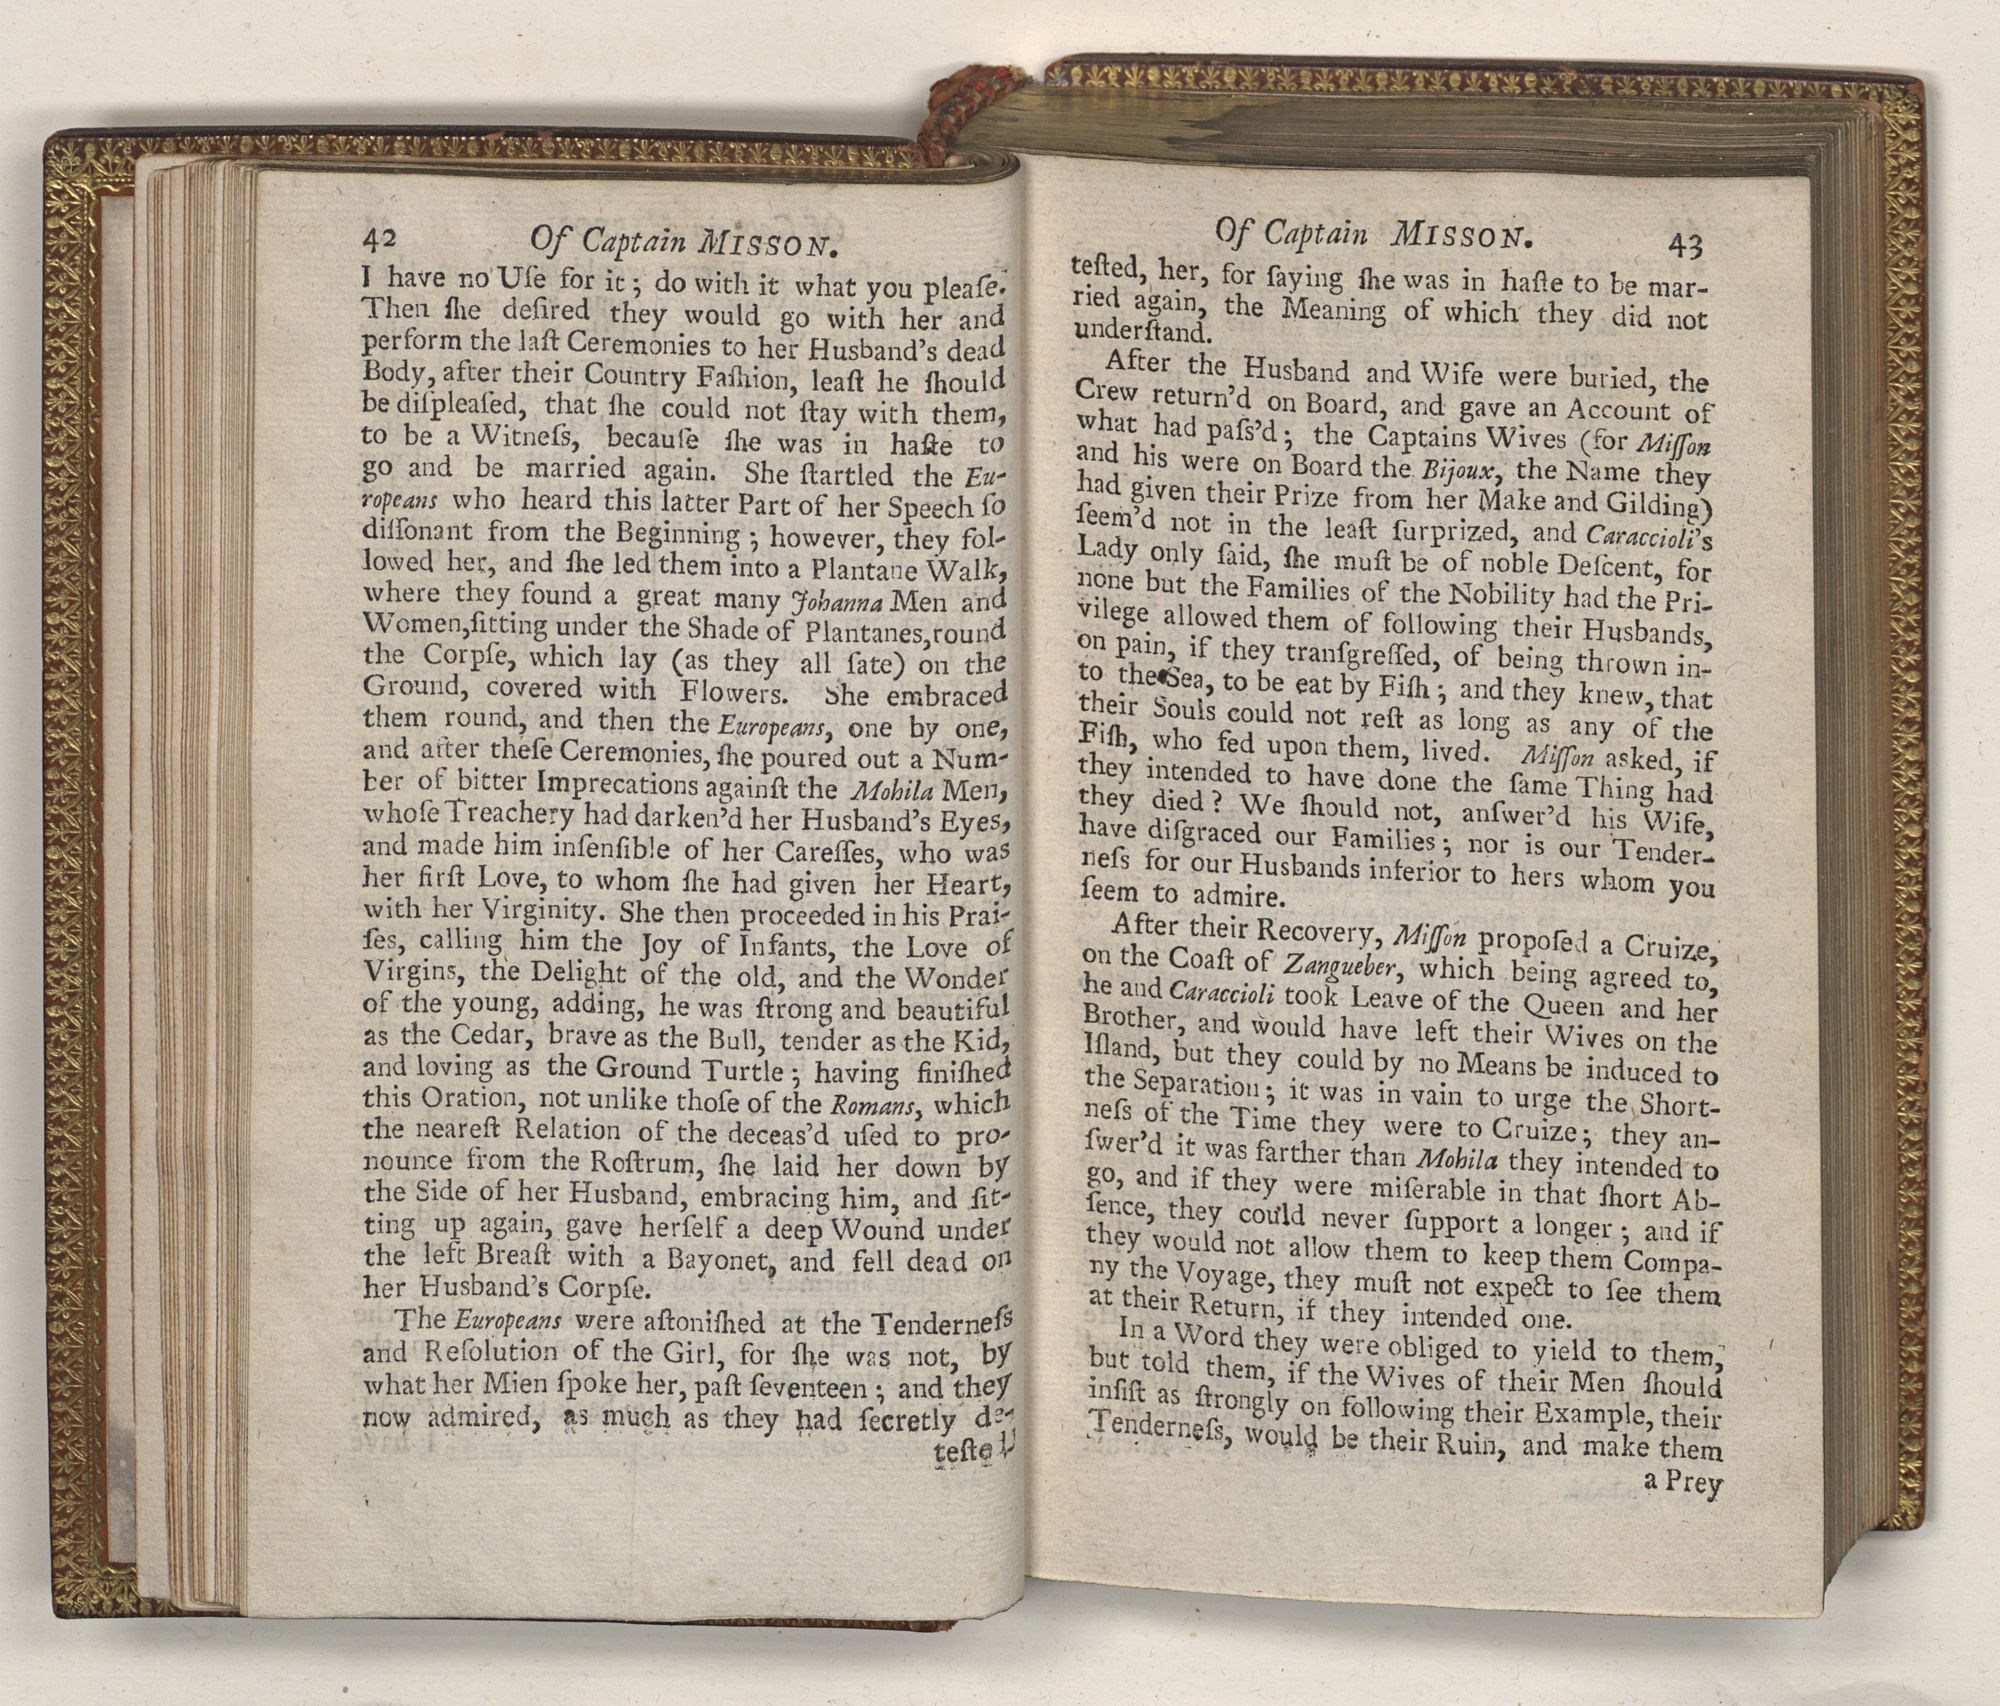 42
Of Captain MISSON.
I have no Uſe for it; do with it what you pleaſe.
Then ſhe deſired they would go with her and
perform the laſt Ceremonies to her Husband's dead
Body, after their Country Faſhion, leaſt he ſhould
be diſpleaſed, that ſhe could not ſtay with them,
to be a Witneſs, becauſe ſhe was in haſte to
go and be married again. She ſtartled the Eu-
ropeans who heard this latter Part of her Speech ſo
diſſonant from the Beginning; however, they fol-
lowed her, and ſhe led them into a Plantane Walk,
where they found a great many Johanna Men and
Women, ſitting under the Shade of Plantanes, round
the Corpſe, which lay (as they all ſate) on the
Ground, covered with Flowers. She embraced
them round, and then the Europeans, one by one,
and after theſe Ceremonies, ſhe poured out a Num-
ber of bitter Imprecations againſt the Mohila Men,
whoſe Treachery had darken'd her Husband's Eyes,
and made him inſenſible of her Careſſes, who was
her firſt Love, to whom ſhe had given her Heart,
with her Virginity. She then proceeded in his Prai-
ſes, calling him the Joy of Infants, the Love of
Virgins, the Delight of the old, and the Wonder
of the young, adding, he was ſtrong and beautiful
as the Cedar, brave as the Bull, tender as the Kid,
and loving as the Ground Turtle; having finiſhed
this Oration, not unlike thoſe of the Romans, which
the neareſt Relation of the deceas'd uſed to pro-
nounce from the Roſtrum, ſhe laid her down by
the Side of her Husband, embracing him, and ſit-
ting up again, gave herſelf a deep Wound under
the left Breaſt with a Bayonet, and fell dead on
her Husband's Corpſe.
The Europeans were aſtoniſhed at the Tenderneſs
and Reſolution of the Girl, for ſhe was not, by
what her Mien ſpoke her, paſt ſeventeen; and they
now admired, as much as they had ſecretly de-
teſted
Of Captain MISSON.
43
teſted, her, for ſaying ſhe was in haſte to be mar-
ried again, the Meaning of which they did not
underſtand.
After the Husband and Wife were buried, the
Crew return'd on Board, and gave an Account of
what had paſs'd; the Captains Wives (for Miſſon
and his were on Board the Bijoux, the Name they
had given their Prize from her Make and Gilding)
ſeem'd not in the leaſt ſurprized, and Caraccioli's
Lady only ſaid, ſhe muſt be of noble Deſcent, for
none but the Families of the Nobility had the Pri-
vilege allowed them of following their Husbands,
on pain, if they tranſgreſſed, of being thrown in-
to the Sea, to be eat by Fiſh; and they knew, that
their Souls could not reſt as long as any of the
Fiſh, who fed upon them, lived. Miſſon asked, if
they intended to have done the ſame Thing had
they died? We ſhould not, anſwer'd his Wife,
have diſgraced our Families; nor is our Tender-
neſs for our Husbands inferior to hers whom you
ſeem to admire.
After their Recovery, Miſſon propoſed a Cruize,
on the Coaſt of Zangueber, which being agreed to,
he and Caraccioli took Leave of the Queen and her
Brother, and would have left their Wives on the
Iſland, but they could by no Means be induced to
the Separation; it was in vain to urge the Short-
neſs of the Time they were to Cruize; they an-
ſwer'd it was farther than Mohila they intended to
go, and if they were miſerable in that ſhort Ab-
ſence, they could never ſupport a longer; and if
they would not allow them to keep them Compa-
ny the Voyage, they muſt not expect to ſee them
at their Return, if they intended one.
In a Word they were obliged to yield to them,
but told them, if the Wives of their Men ſhould
inſiſt as ſtrongly on following their Example, their
Tenderneſs, would be their Ruin, and make them
a Prey